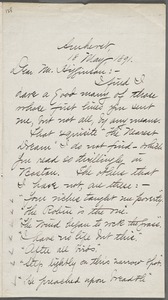 Amherst
18 May 1891.
Dear Mr. Higginson:-
I find I
have a good many of those
whose first lines you sent
me, but not all, by any means.
That exquisite "The Nearest
Dream" I do not find - which
you read so thrillingly in
Boston. The others that
I have not, are these:-
"Your riches taught me poverty"
"The Robin is the one"
"The Wind begun to rock the grass"
"I have no life but this"
"Step lightly on this narrow spot"
"He preached upon 'Breadth'"